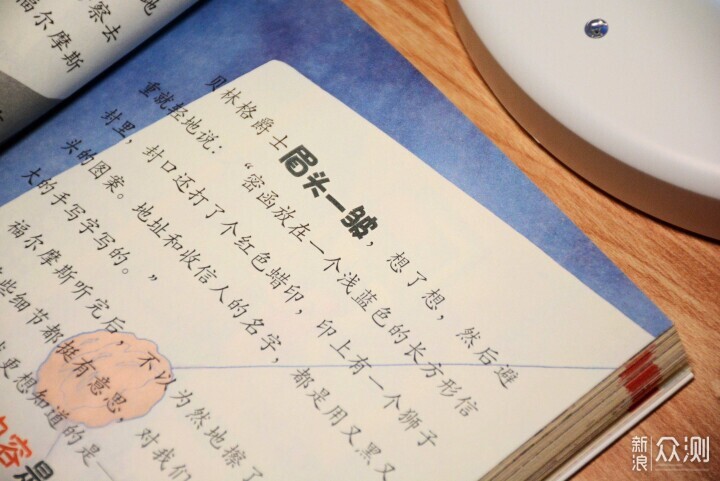 地
察去
福尔摩斯
贝林格爵士眉头一皱，想了想，然后避
重就轻地说：“密函放在一个浅蓝色的长方形信
封里，封口还打了个红色蜡印，印上有一个狮子
头的图案。地址和收信人的名字，都是用又黑又
大的手写字写的。”
福尔摩斯听完后，不以为然地擦了
些细节都挺有意思，对我们
更想知道的是——
内容是
新浪 众测